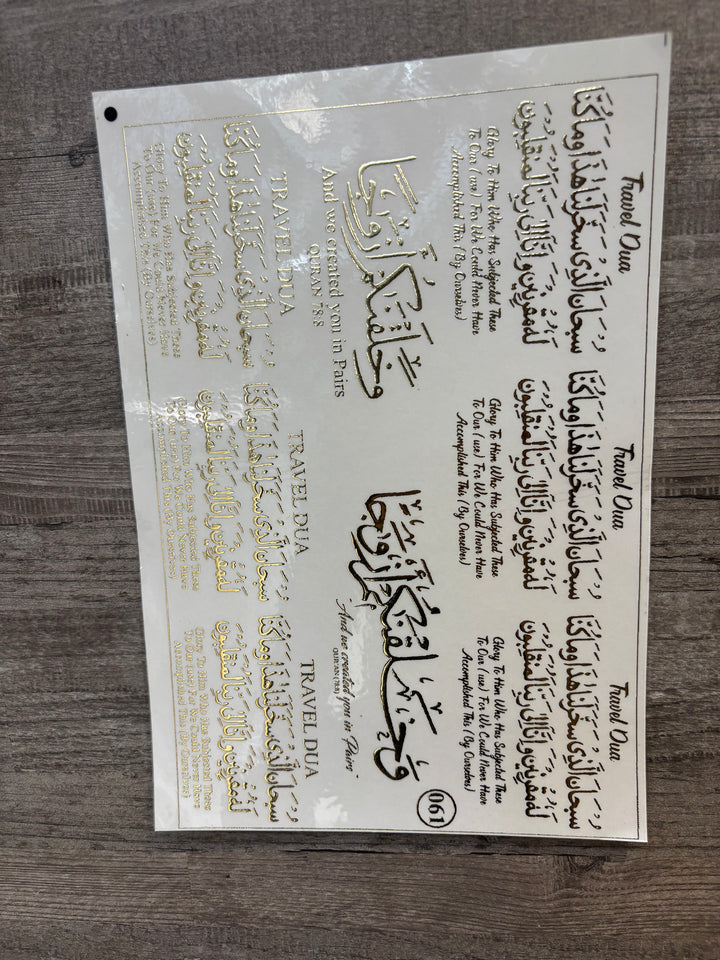 Travel Dua
سُبْحَانَ الَّذِي سَخَّرَ لَنَا هَذَا وَمَا كُنَّا
لَهُ مُقْرِنِينَ وَإِنَّا إِلَى رَبِّنَا لَمُنْقَلِبُونَ
Glory To Him Who Has Subjected These
To Our ( use) For We Could Never Have
Accomplished This ( By Ourselves)
Travel Dua
سُبْحَانَ الَّذِي سَخَّرَ لَنَا هَذَا وَمَا كُنَّا
لَهُ مُقْرِنِينَ وَإِنَّا إِلَى رَبِّنَا لَمُنْقَلِبُونَ
Glory To Him Who Has Subjected These
To Our ( use) For We Could Never Have
Accomplished This ( By Ourselves)
Travel Dua
سُبْحَانَ الَّذِي سَخَّرَ لَنَا هَذَا وَمَا كُنَّا
لَهُ مُقْرِنِينَ وَإِنَّا إِلَى رَبِّنَا لَمُنْقَلِبُونَ
Glory To Him Who Has Subjected These
To Our ( use) For We Could Never Have
Accomplished This ( By Ourselves)
وَخَلَقْنَٰكُمْ أَزْوَٰجًا
And we created you in Pairs
QURAN 78:8
وَخَلَقْنَٰكُمْ أَزْوَٰجًا
"And we created you in Pairs"
QUR'AN (78:8)
061
TRAVEL DUA
سُبْحَانَ الَّذِي سَخَّرَ لَنَا هَذَا وَمَا كُنَّا
لَهُ مُقْرِنِينَ وَإِنَّا إِلَى رَبِّنَا لَمُنْقَلِبُونَ
Glory To Him Who Has Subjected These
To Our (use) For We Could Never Have
Accomplished This (By Ourselves)
TRAVEL DUA
سُبْحَانَ الَّذِي سَخَّرَ لَنَا هَذَا وَمَا كُنَّا
لَهُ مُقْرِنِينَ وَإِنَّا إِلَى رَبِّنَا لَمُنْقَلِبُونَ
Glory To Him Who Has Subjected These
To Our (use) For We Could Never Have
Accomplished This (By Ourselves)
TRAVEL DUA
سُبْحَانَ الَّذِي سَخَّرَ لَنَا هَذَا وَمَا كُنَّا
لَهُ مُقْرِنِينَ وَإِنَّا إِلَى رَبِّنَا لَمُنْقَلِبُونَ
Glory To Him Who Has Subjected These
To Our (use) For We Could Never Have
Accomplished This (By Ourselves)